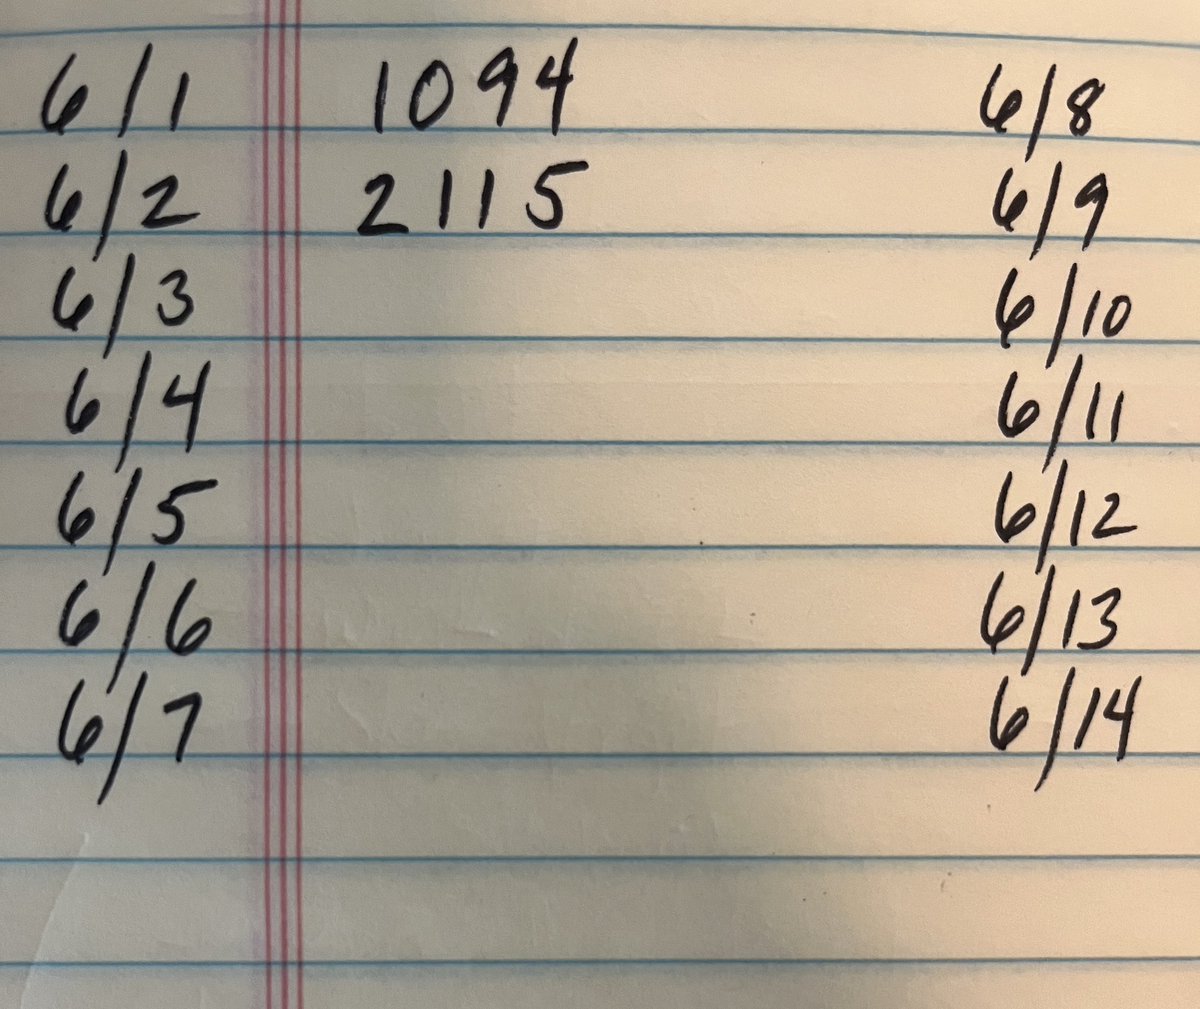 6/1 1094 6/8
6/2 2115 6/9
6/3 6/10
6/4 6/11
6/5 6/12
6/6 6/13
6/7 6/14